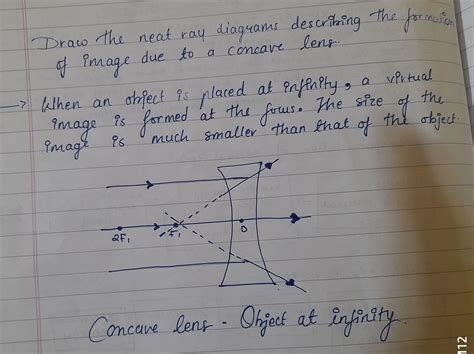 Draw the neat ray diagrams describing the formation
of image due to a concave lens.
→ When an object is placed at infinity, a virtual
image is formed at the focus. The size of the
image is much smaller than that of the object
2F₁ F₁ O
Concave lens - Object at infinity.
112